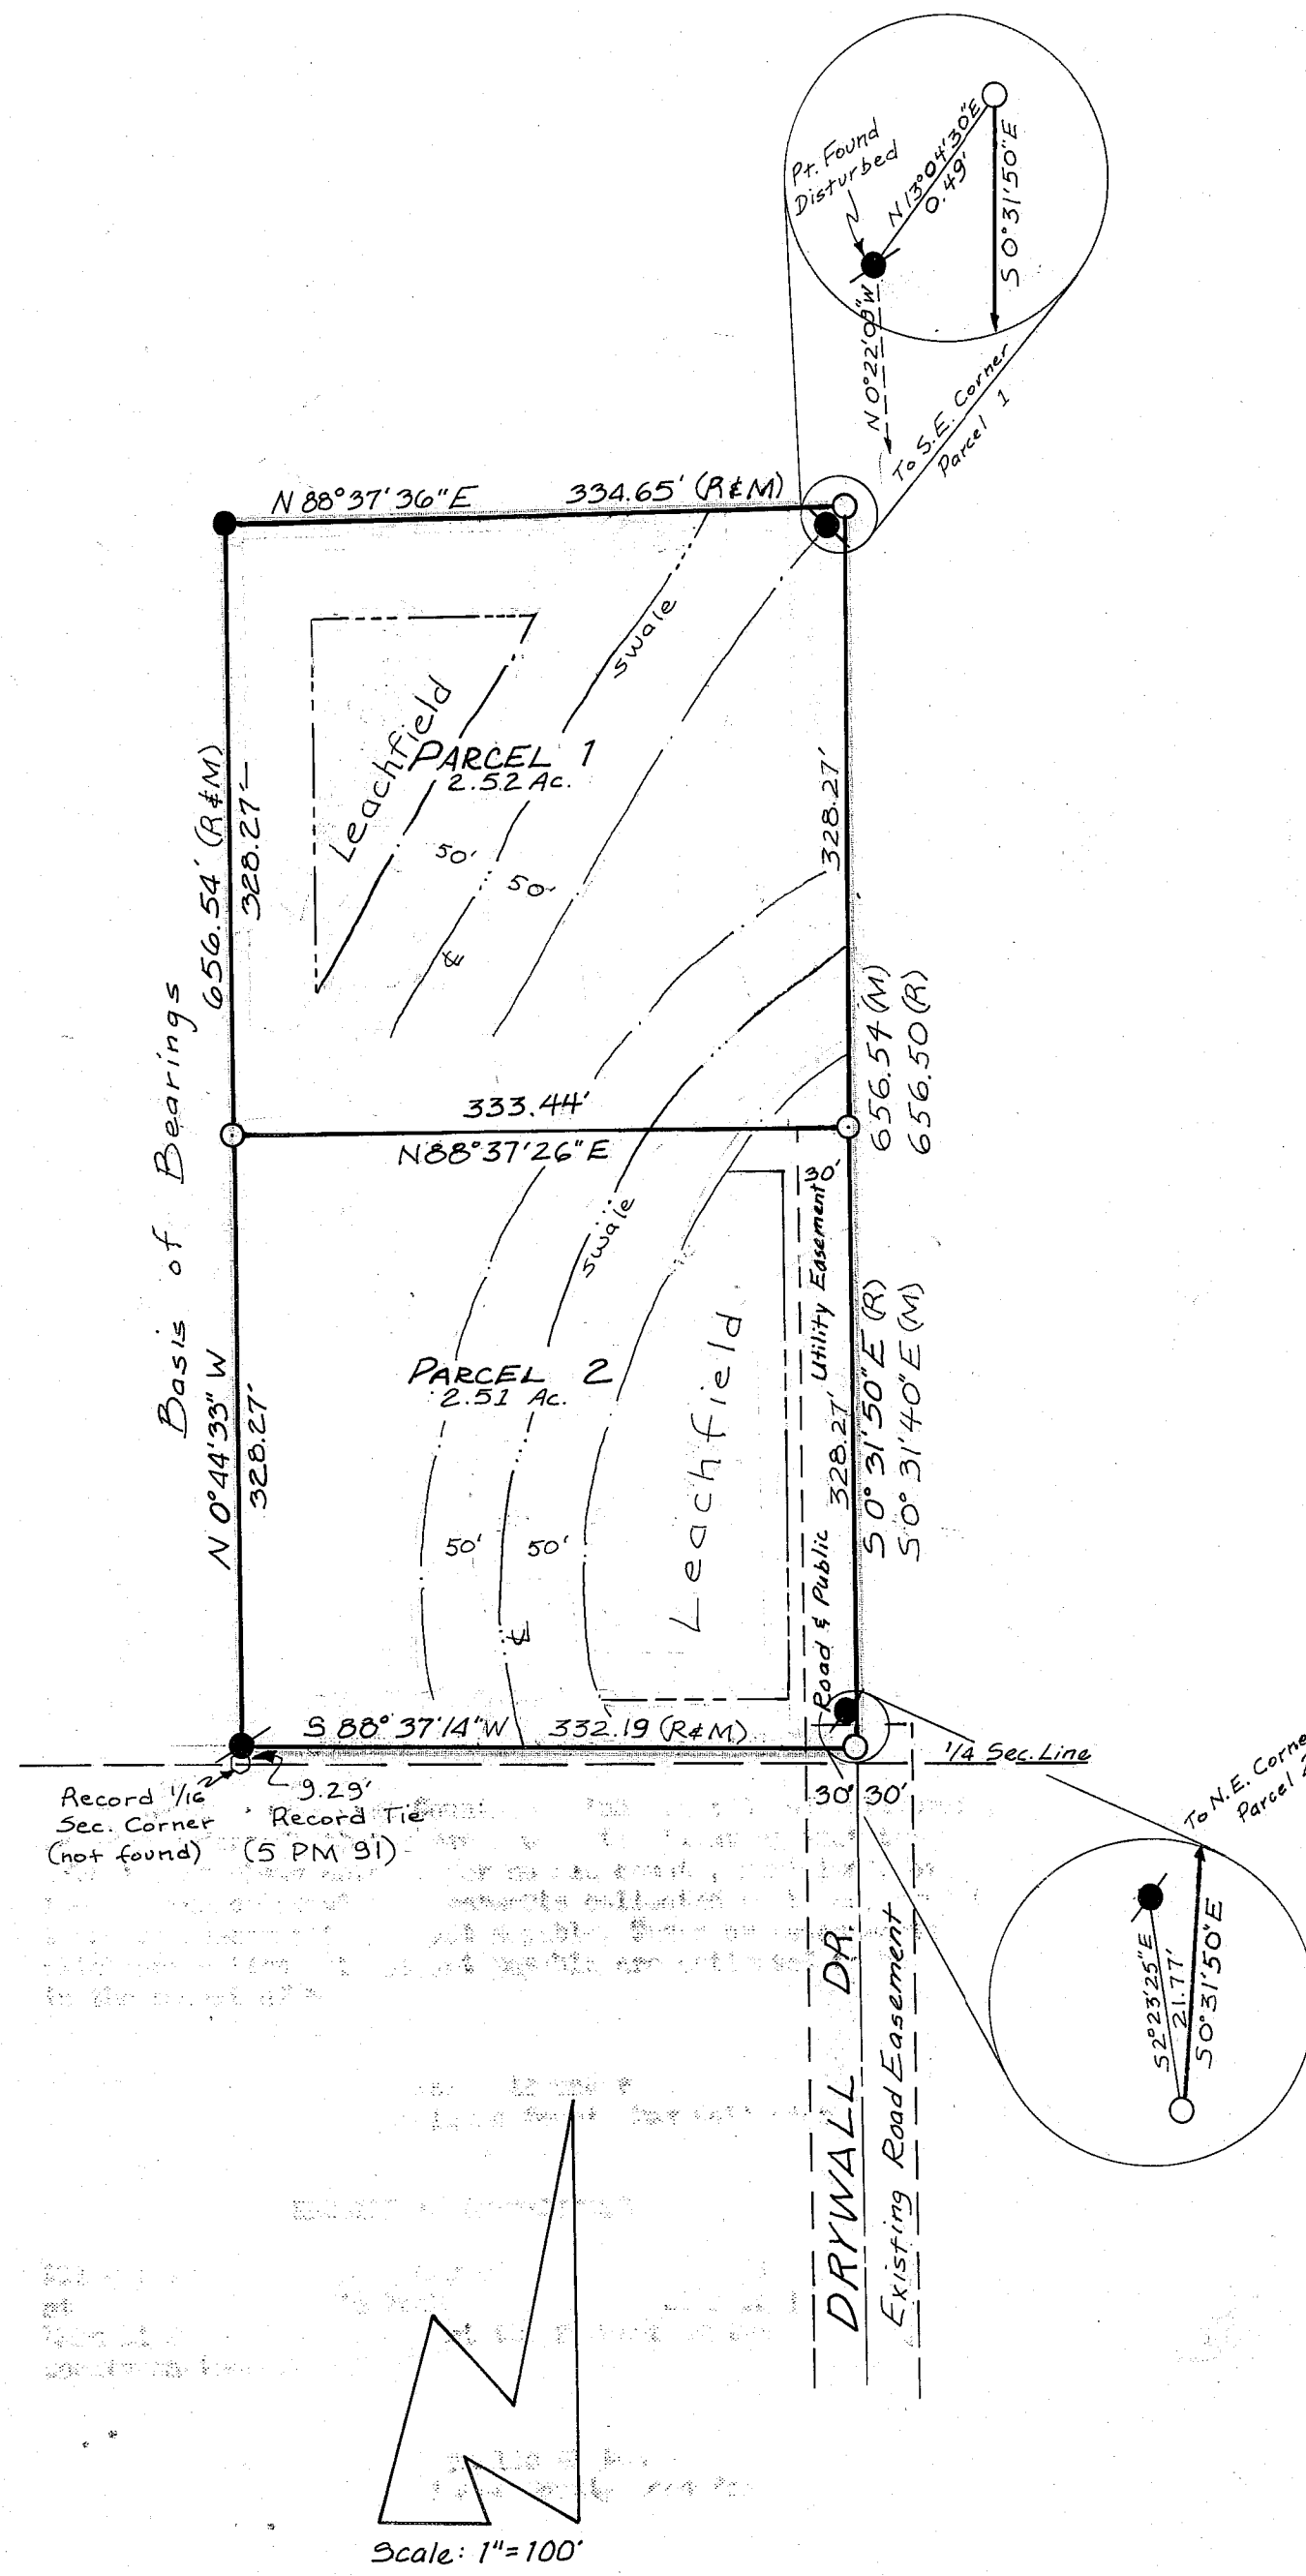 Pt. Found
Disturbed
N 13°04'30"E
0.49'
S 0°31'50"E
N 0°22'09"W
To S.E. Corner
Parcel 1
N 88°37'36"E
334.65' (R&M)
swale
Leachfield
PARCEL 1
2.52 Ac.
50'
50'
℄
656.54' (R&M)
328.27'
328.27'
Basis of Bearings
333.44'
N88°37'26"E
656.54 (M)
656.50 (R)
30'
swale
PARCEL 2
2.51 Ac.
50'
50'
℄
Leachfield
Road & Public Utility Easement
328.27'
S 0° 31'50"E (R)
S 0° 31'40"E (M)
N 0°44'33" W
328.27'
S 88° 37'14"W
332.19 (R&M)
1/4 Sec. Line
Record 1/16
Sec. Corner
(not found)
9.29'
Record Tie
(5 PM 91)
30' 30'
To N.E. Corner
Parcel 2
S2°23'25"E
21.77'
S0°31'50"E
DRYWALL DR.
Existing Road Easement
Scale: 1"=100'